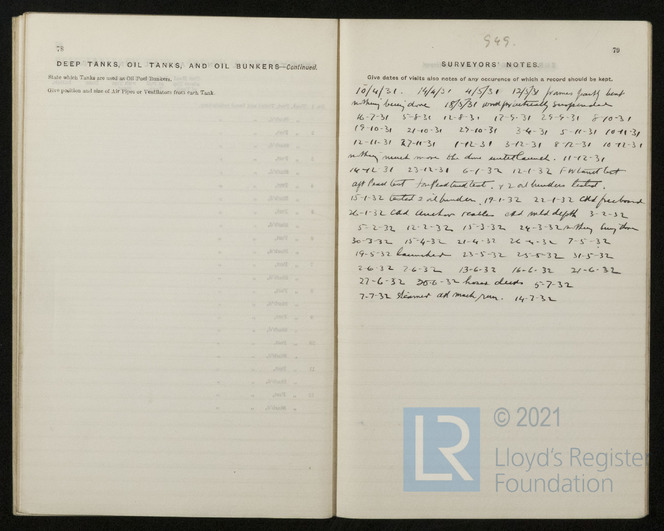 78
DEEP TANKS, OIL TANKS, AND OIL BUNKERS—Continued.
State which Tanks are used as Oil Fuel Bunkers.
Give position and size of Air Pipes or Ventilators from each Tank.
949.
79
SURVEYORS' NOTES.
Give dates of visits also notes of any occurence of which a record should be kept.
10/4/31. 14/4/31 4/5/31 12/5/31 frames partly bent
nothing being done 18/5/31 work suspended
16-7-31 5-8-31 12-8-31 17-9-31 29-9-31 8-10-31
19-10-31 21-10-31 29-10-31 3-4-31 5-11-31 10-11-31
12-11-31 27-11-31 1-12-31 3-12-31 8-12-31 10-12-31
nothing much more to be done until launch. 11-12-31
14-12-31 23-12-31 6-1-32 12-1-32 test
aft peak test for peak tank test, & 2 oil bunkers tested.
15-1-32 tested 2 oil bunkers, 19-1-32 22-1-32 ckd freeboard
26-1-32 ckd anchor cables ckd mld depth 3-2-32
5-2-32 12-2-32 15-3-32 24-3-32 nothing being done
30-3-32 15-4-32 21-4-32 26-4-32 7-5-32
19-5-32 launched 23-5-32 25-5-32 31-5-32
2-6-32 7-6-32 13-6-32 16-6-32 21-6-32
27-6-32 30-6-32 hose decks 5-7-32
7-7-32 steamer ad mach/run. 14-7-32
LR
© 2021
Lloyd's Register
Foundation